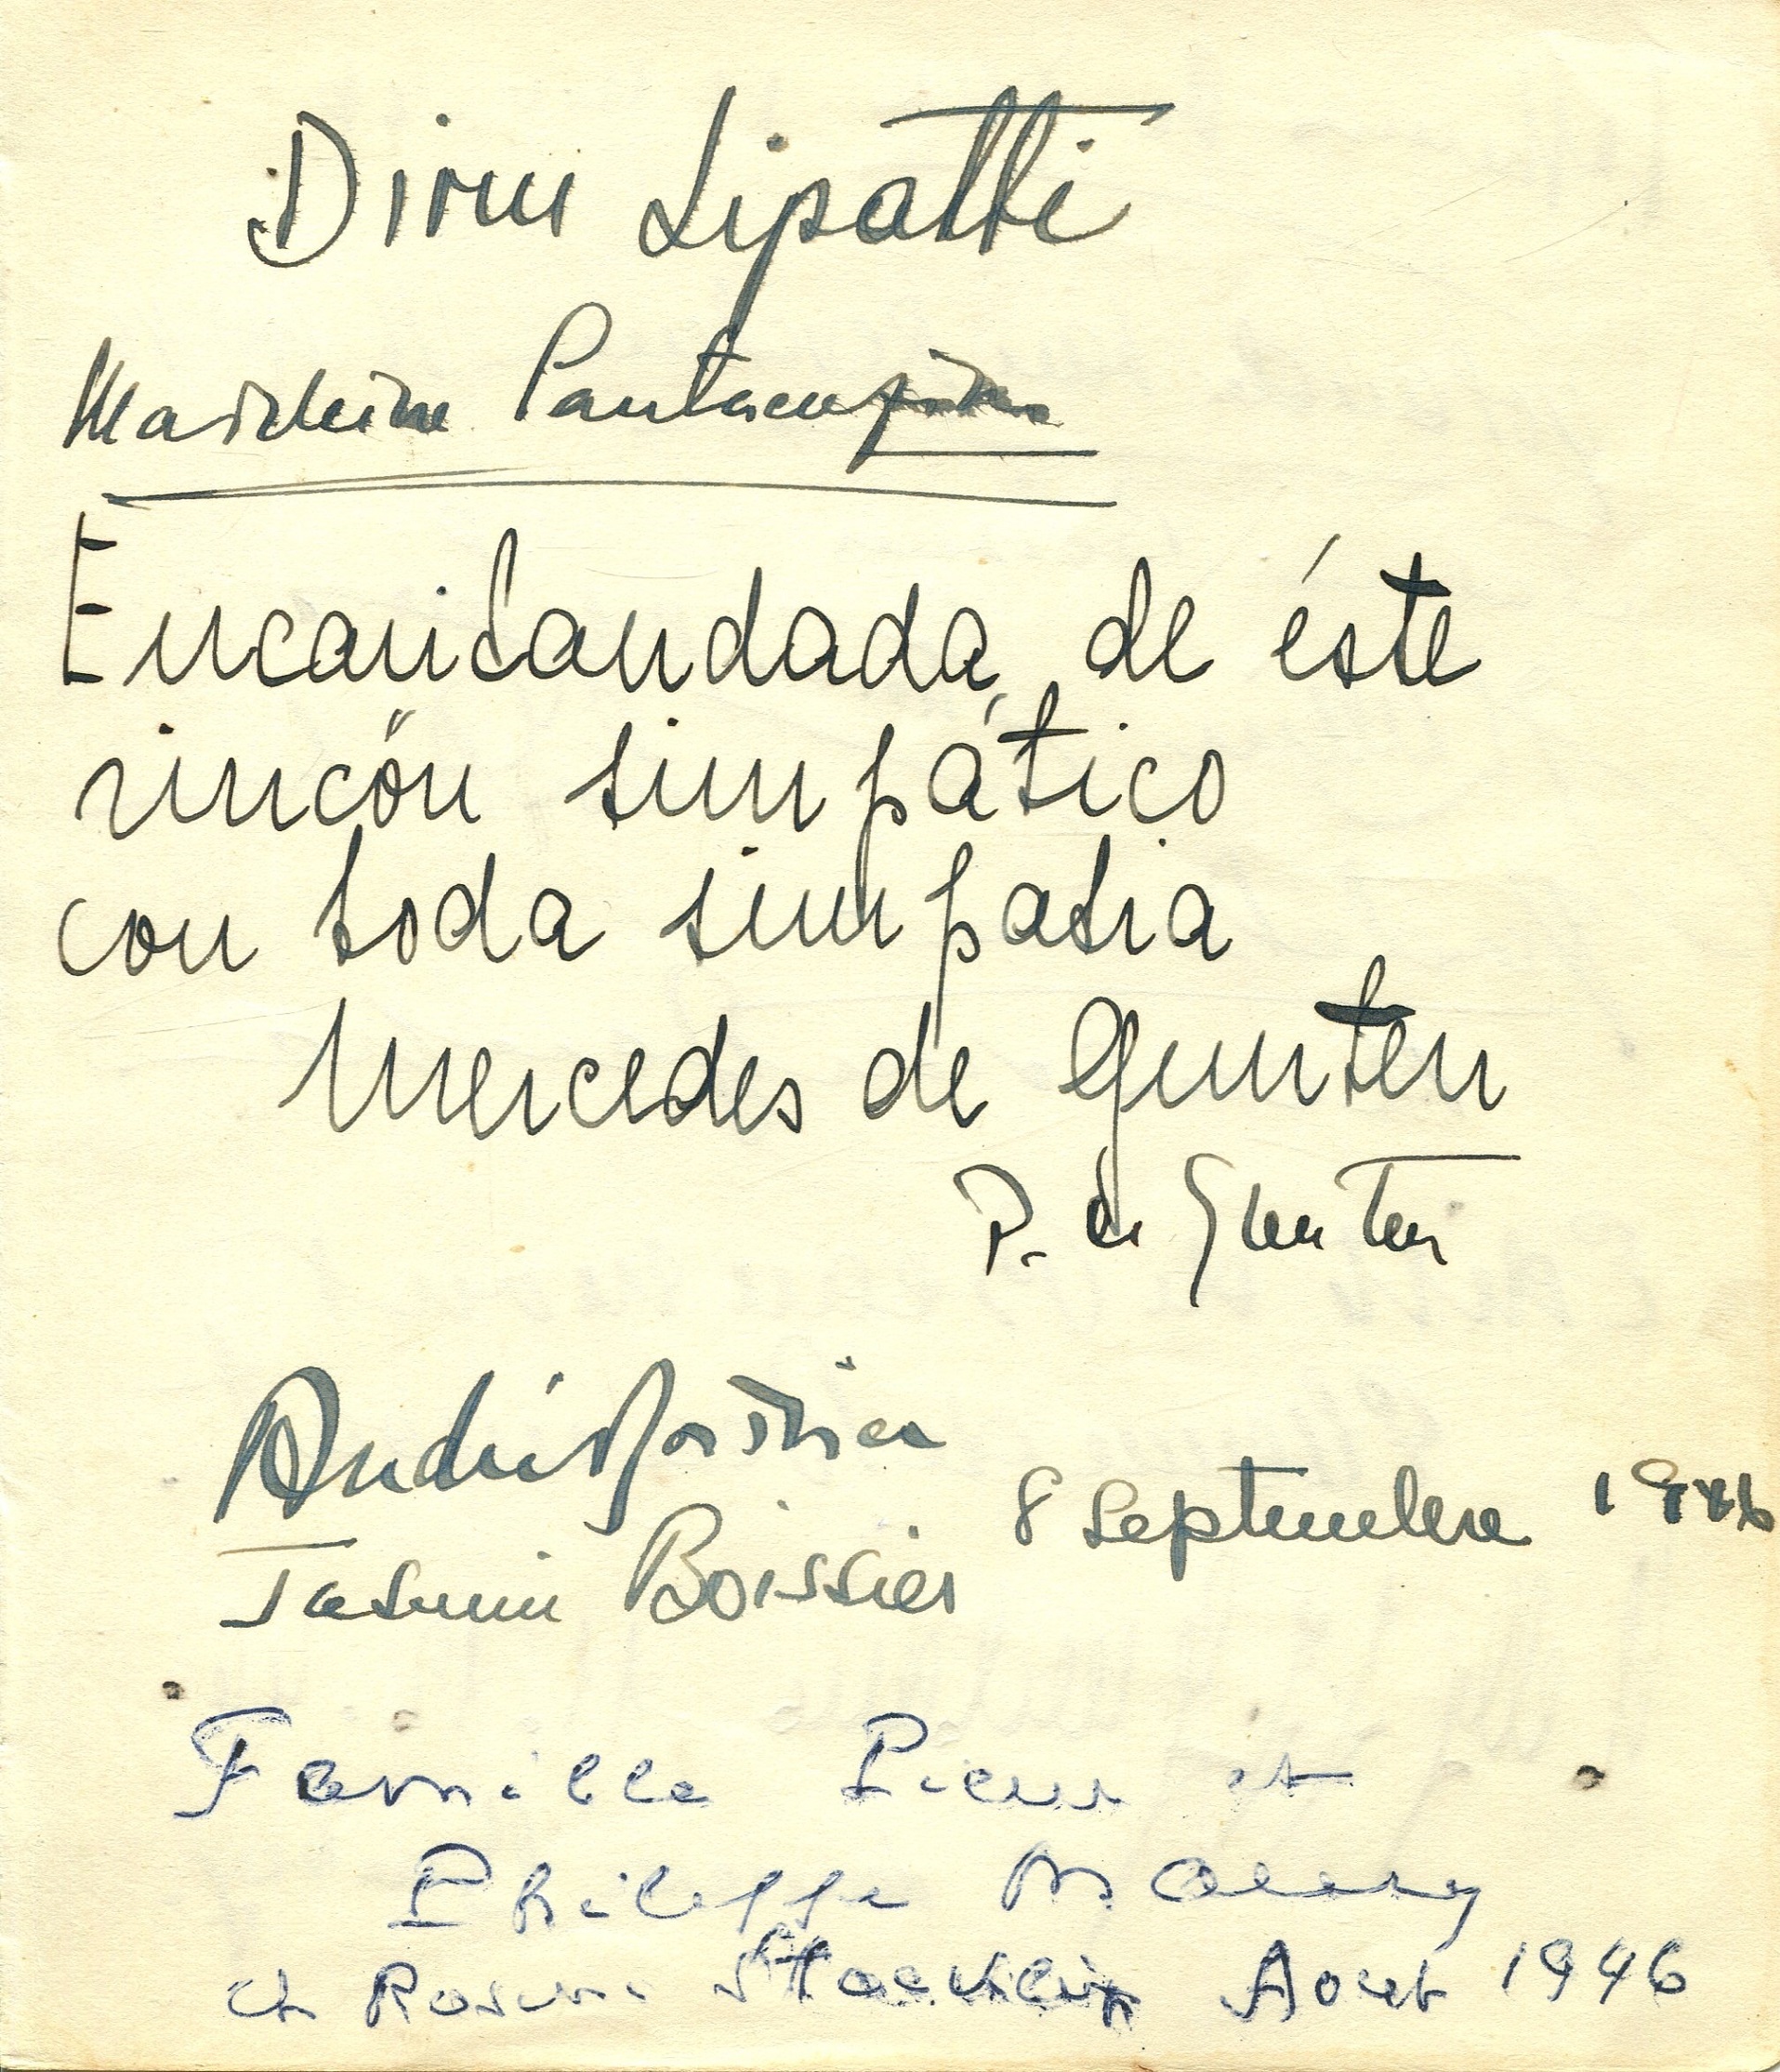 Dinu Lipatti
Madeleine
Encantandada de éste
rincón simpático
con toda simpatia
Mercedes de Gunten
P. de Gunten
André
8 Septembre 1946
Boissier
Famille Pierre et
Philippe
et Août 1946